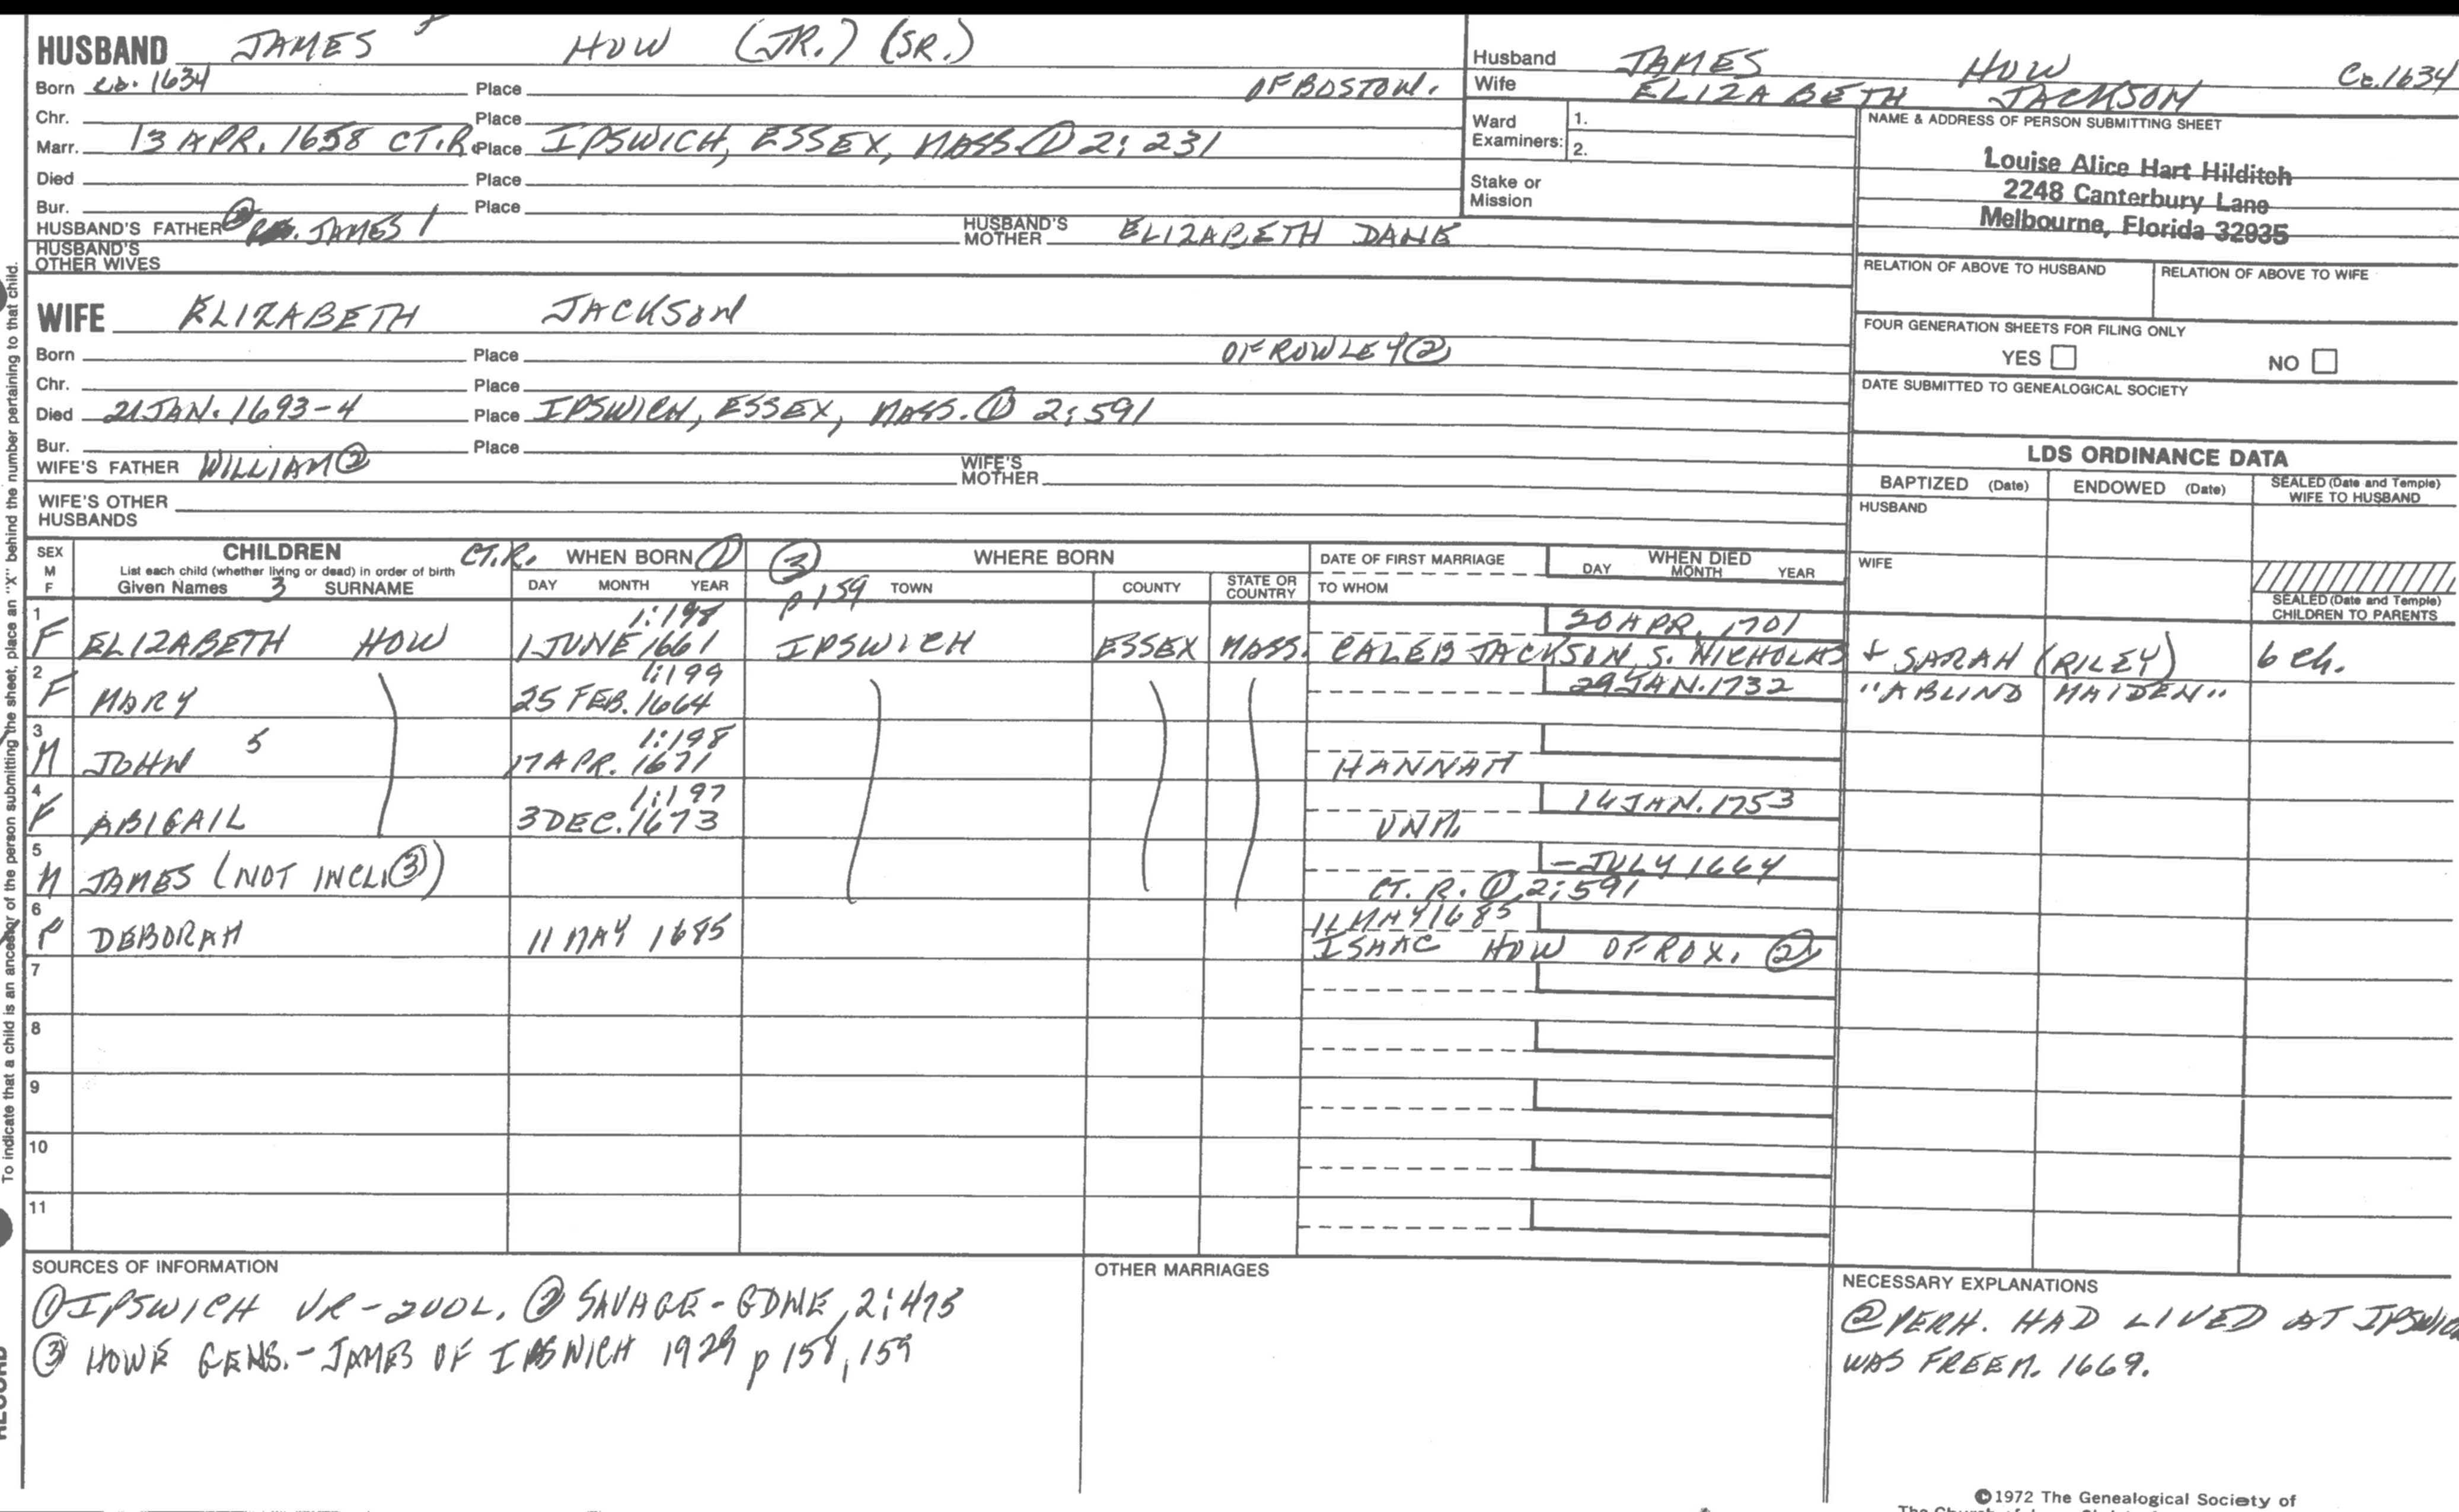 HUSBAND JAMES HOW (JR.) (SR.)
Born ca. 1634 Place OF BOSTON.
Chr. Place
Marr. 13 APR. 1658 CT.R. Place IPSWICH, ESSEX, MASS. ① 2:231
Died Place
Bur. Place
HUSBAND'S FATHER ② JAMES 1 HUSBAND'S MOTHER ELIZABETH DANE
HUSBAND'S OTHER WIVES
Husband JAMES HOW Ca. 1634
Wife ELIZABETH JACKSON
Ward Examiners: 1.
2.
Stake or Mission
NAME & ADDRESS OF PERSON SUBMITTING SHEET
Louise Alice Hart Hilditch
2248 Canterbury Lane
Melbourne, Florida 32935
RELATION OF ABOVE TO HUSBAND RELATION OF ABOVE TO WIFE
FOUR GENERATION SHEETS FOR FILING ONLY
YES NO
DATE SUBMITTED TO GENEALOGICAL SOCIETY
WIFE ELIZABETH JACKSON
Born Place OF ROWLEY ②
Chr. Place
Died 21 JAN. 1693-4 Place IPSWICH, ESSEX, MASS. ① 2:591
Bur. Place
WIFE'S FATHER WILLIAM ② WIFE'S MOTHER
WIFE'S OTHER HUSBANDS
LDS ORDINANCE DATA
BAPTIZED (Date) ENDOWED (Date) SEALED (Date and Temple) WIFE TO HUSBAND
HUSBAND
WIFE
SEALED (Date and Temple) CHILDREN TO PARENTS
SEX M F CHILDREN CT.R. WHEN BORN ① ③ WHERE BORN DATE OF FIRST MARRIAGE WHEN DIED
List each child (whether living or dead) in order of birth
Given Names 3 SURNAME DAY MONTH YEAR p 159 TOWN COUNTY STATE OR COUNTRY TO WHOM DAY MONTH YEAR
1 1:198 20 APR. 1701
F ELIZABETH HOW 1 JUNE 1661 IPSWICH ESSEX MASS. CALEB JACKSON, S. NICHOLAS + SARAH (RILEY) 6 ch.
2 1:199 29 JAN. 1732 "A BLIND MAIDEN"
F MARY 25 FEB. 1664
3 1:198
M JOHN 5 17 APR. 1671 HANNAH
4 1:197 16 JAN. 1753
F ABIGAIL 3 DEC. 1673 UNM.
5 – JULY 1664
M JAMES (NOT INCL. ③) CT. R. ① 2:591
6 11 MAY 1685
F DEBORAH 11 MAY 1685 ISAAC HOW OF ROX. ②
7
8
9
10
11
SOURCES OF INFORMATION
① IPSWICH VR-2VOL. ② SAVAGE-GDNE, 2:475
③ HOWE GENS.-JAMES OF IPSWICH 1929 p 158, 159
OTHER MARRIAGES
NECESSARY EXPLANATIONS
② PERH. HAD LIVED AT IPSWIC
WAS FREEM. 1669.
To indicate that a child is an ancestor of the person submitting the sheet, place an "X" behind the number pertaining to that child.
©1972 The Genealogical Society of